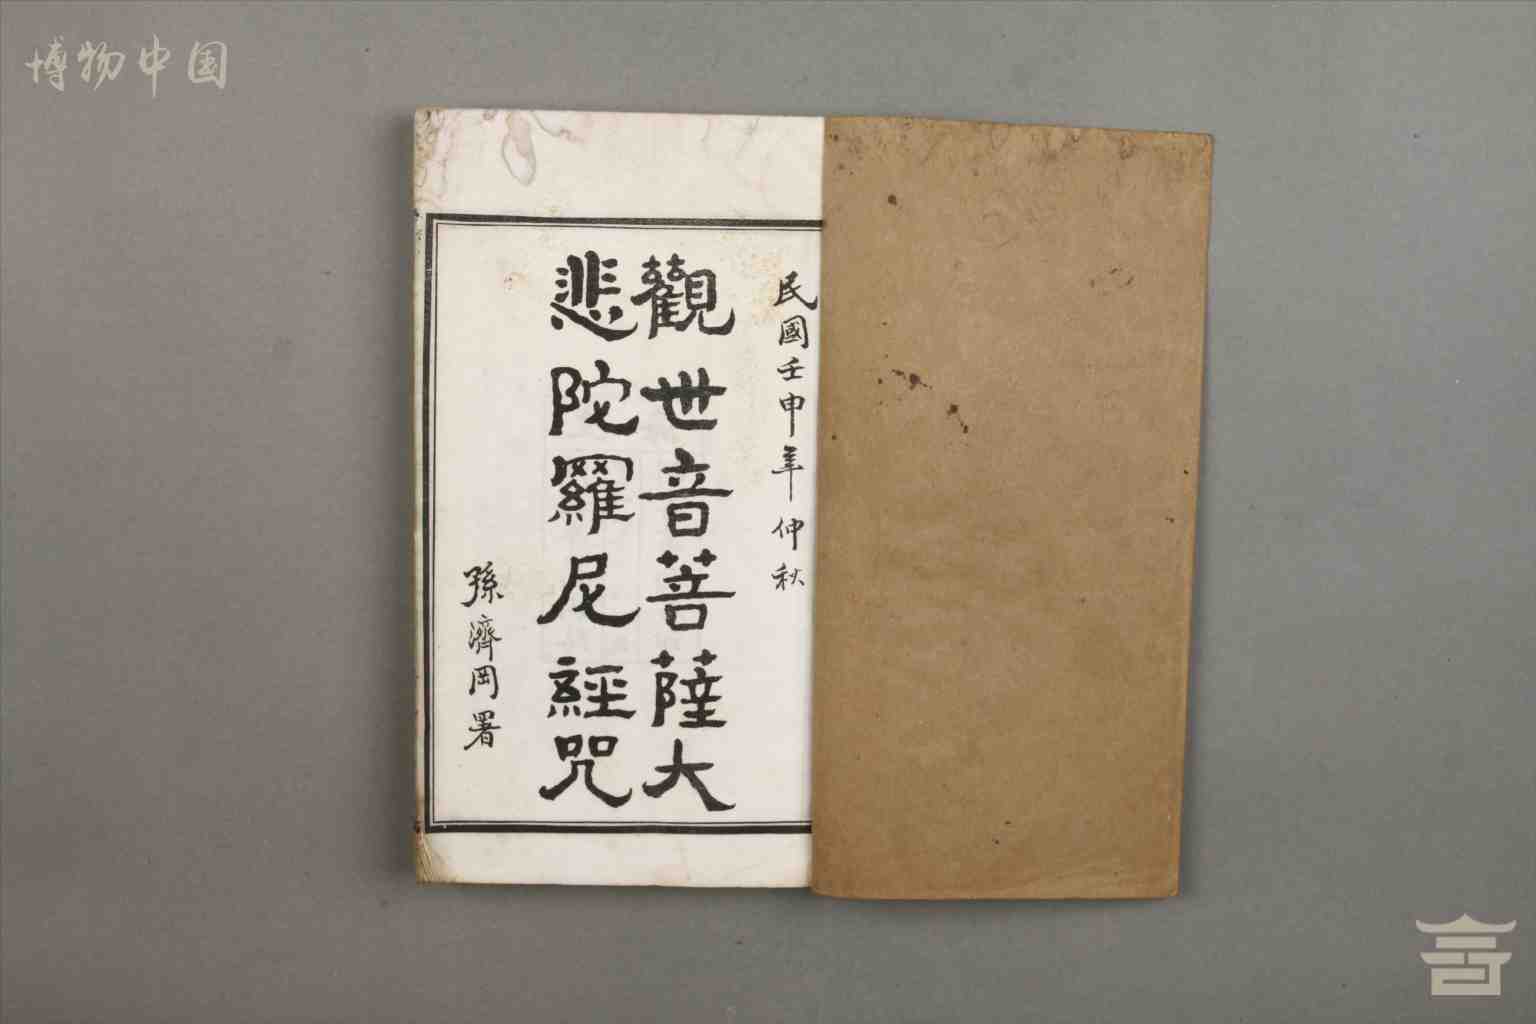 博物中国
民國壬申年仲秋
觀世音菩薩大
悲陀羅尼經咒
孫濟岡署